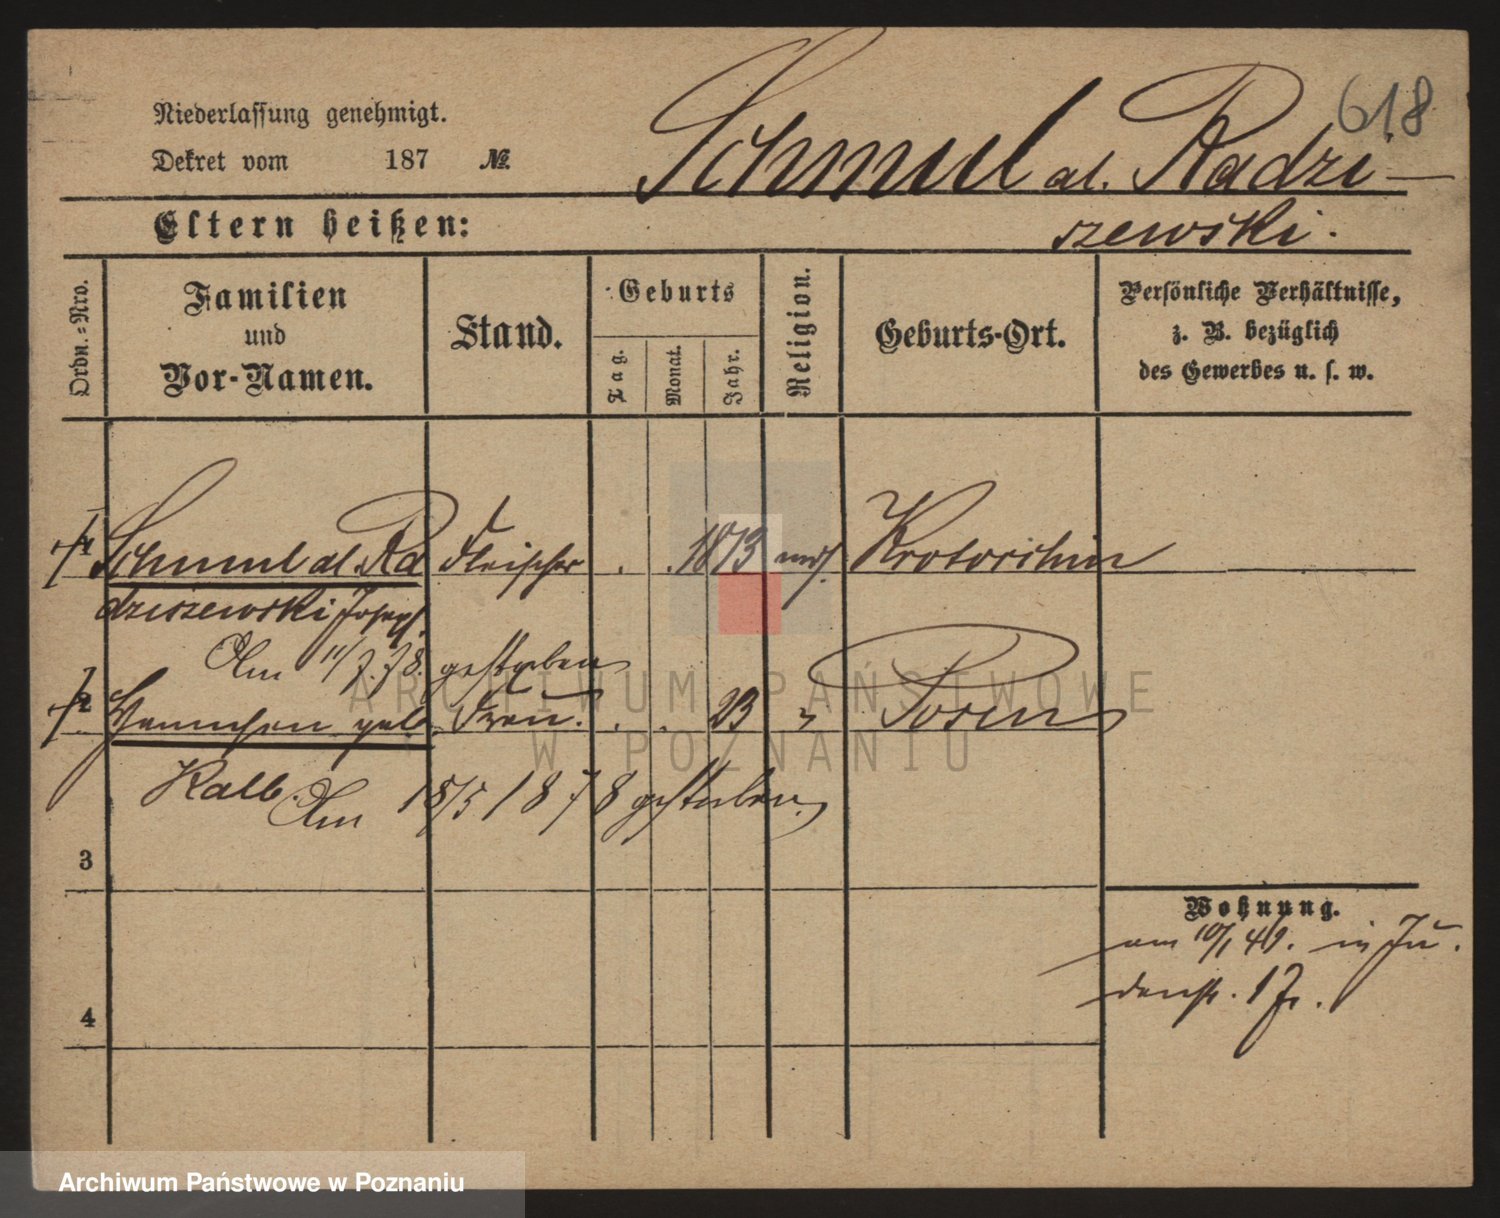 618
Niederlassung genehmigt.
Dekret vom 187 №
Schmul al. Radzi-
szewski.
Eltern heißen:
Ordn.=Nro.
Familien
und
Vor-Namen.
Stand.
Geburts
Tag.
Monat.
Jahr.
Religion.
Geburts-Ort.
Persönliche Verhältnisse,
z. B. bezüglich
des Gewerbes u. s. w.
1 Schmul al. Ra Fleischer . . 1813 mos. Krotoschin
dziszewski Joseph
Am 11/7.78. gestorben
2 Hannchen geb. Frau. . . 23 " Posen
Kalb. Am 18/5 1878 gestorben.
3
4
Wohnung.
am 10/1 49. in Ju.
denstr. 17.
ARCHIWUM PAŃSTWOWE
W POZNANIU
Archiwum Państwowe w Poznaniu